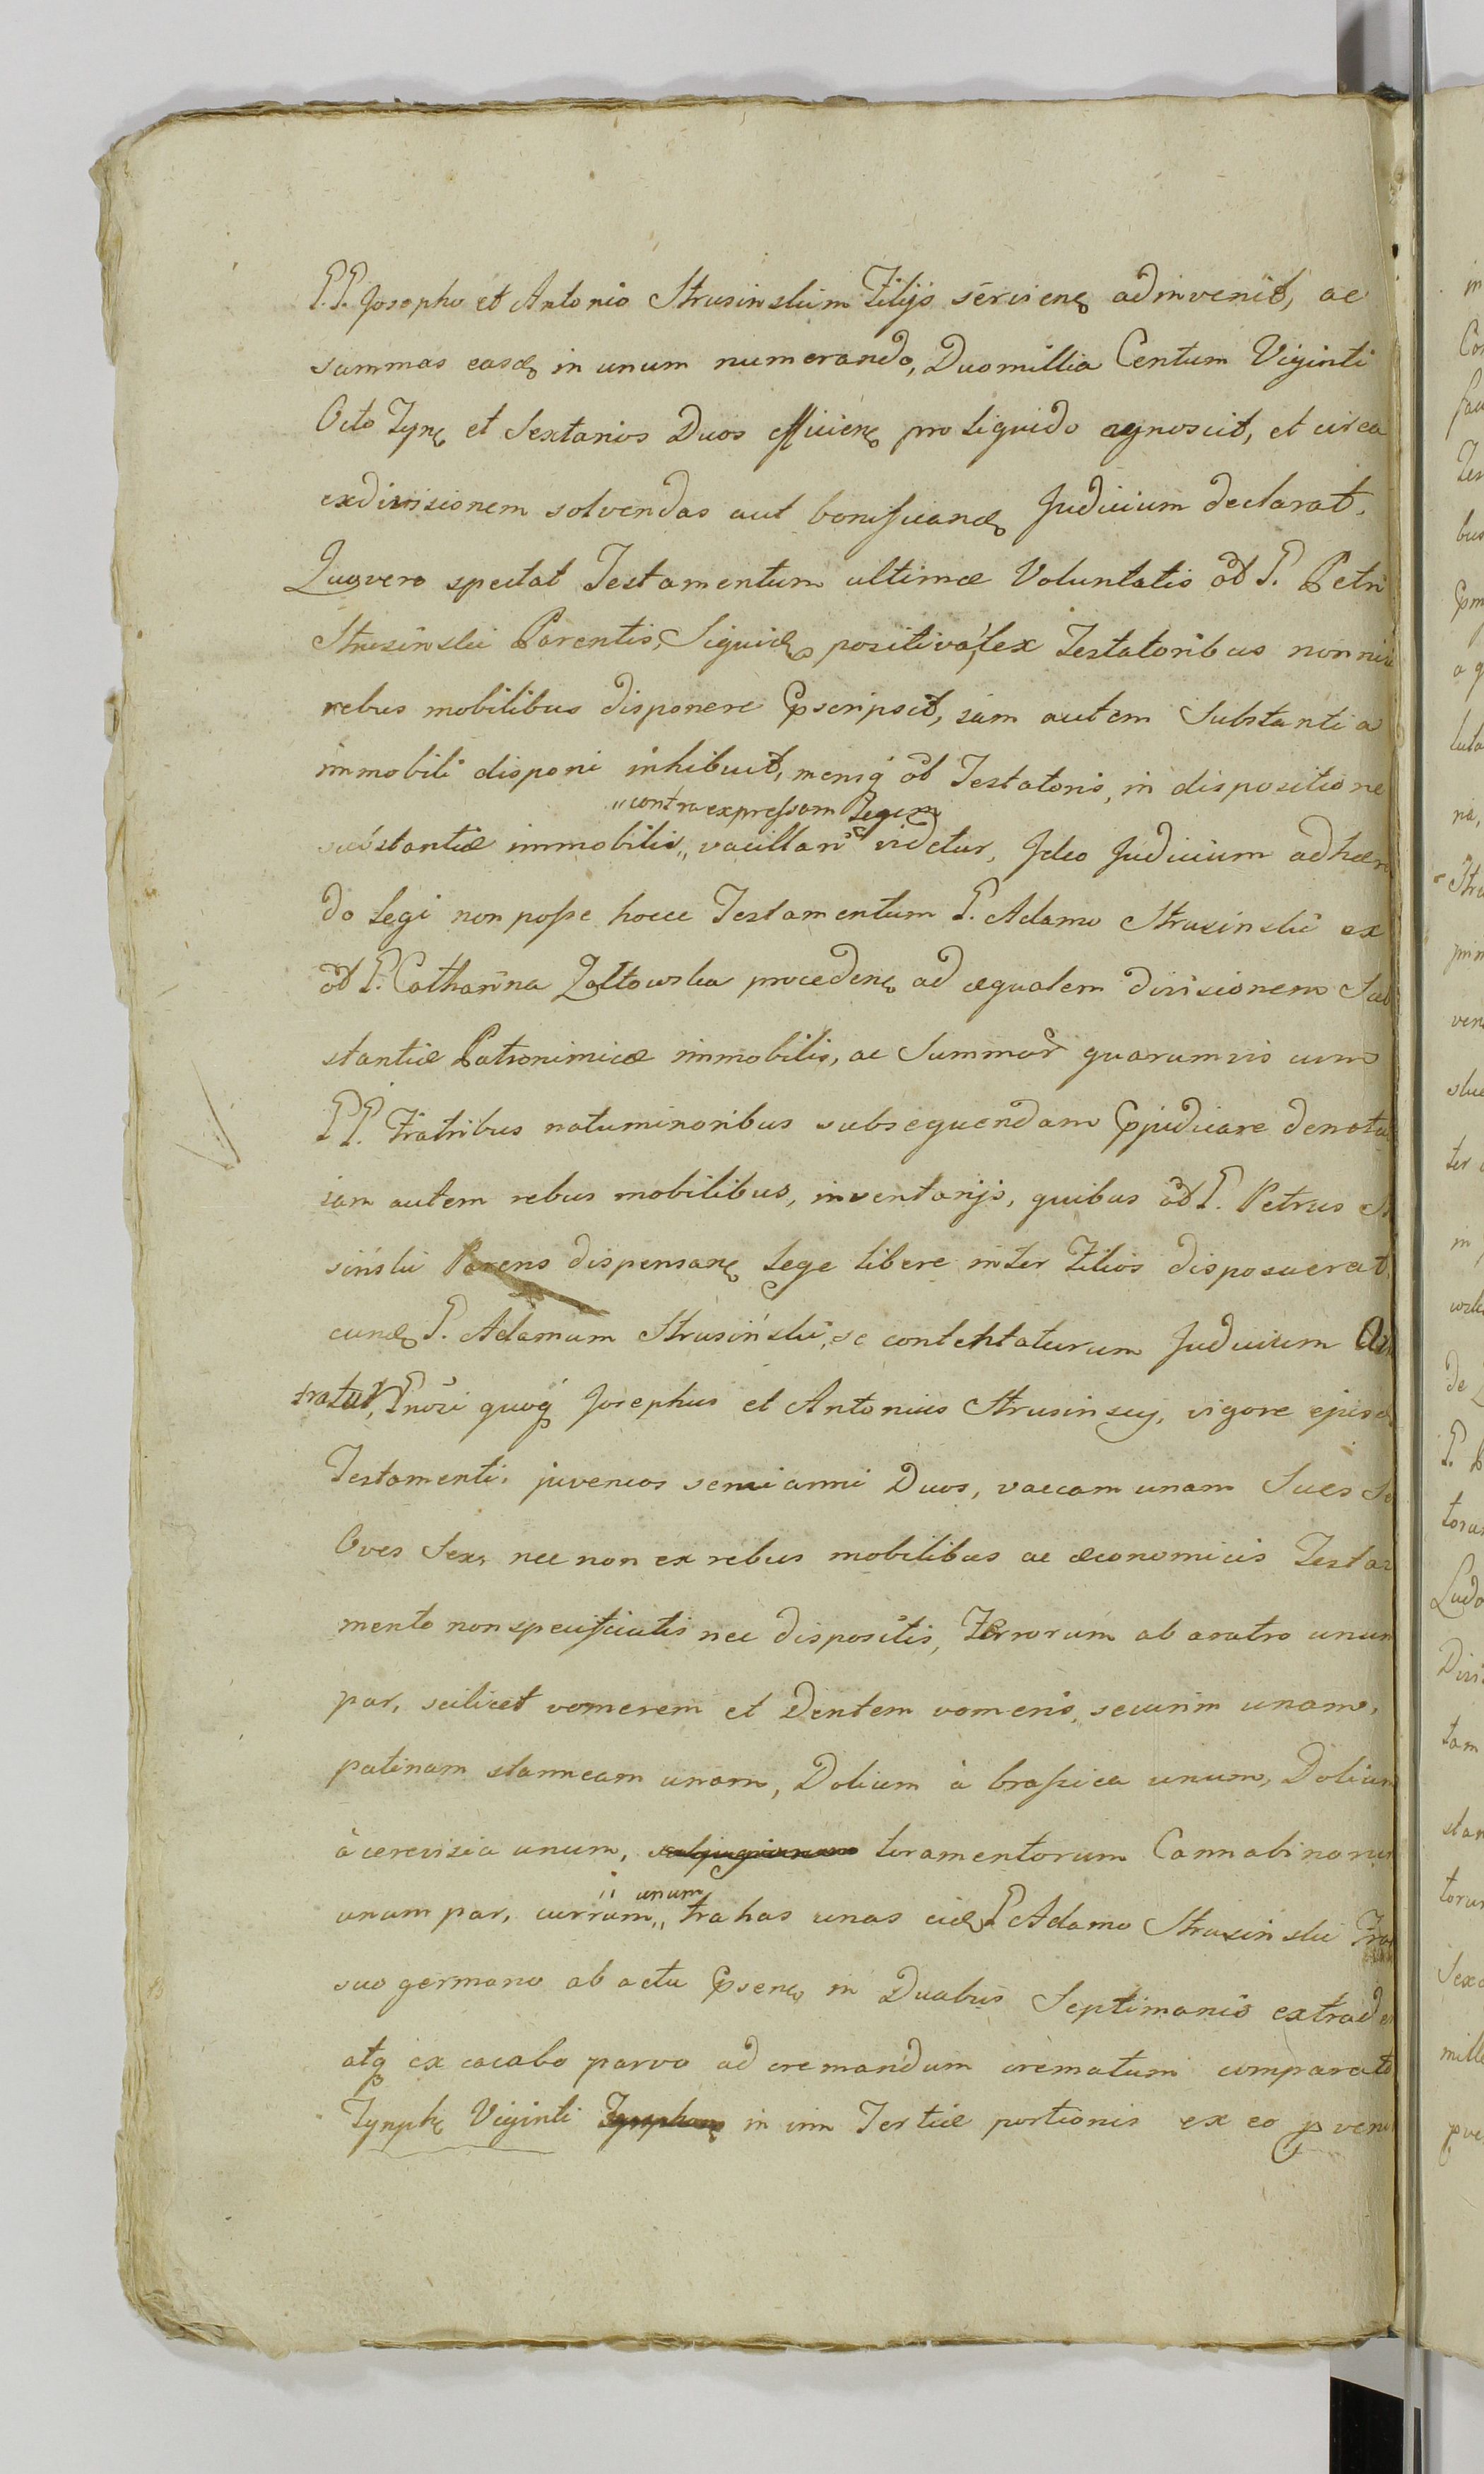 P.P. Josepho et Antonio Strusinskim Filijs servienȩ adinvenit, ac
summas easdȩ in unum numerando, Duomillia Centum Viginti
Octo Tynȩ et Sextarios Duos efficienȩ pro liquido agnoscit, et circa
exdivisionem solvendas aut bonificandȩ Judicium declarat.
Quovero spectat Testamentum ultimæ Voluntatis ad P. Petri
Strusinski Parentis, Siquidȩ positiva lex Testatoribus nonni
rebus mobilibus disponere pscripsit, iam autem Substantia
immobili disponi inhibuit, mensq̃ ad Testatoris, in dispositione
"contra expressam Legem
substantiæ immobilis,, vacillare videtur, Ideo Judicium adhæren
do legi non posse hocce Testamentum P. Adamo Strusinski ex
ad P. Catharina Zołtowska procedenȩ ad æqualem divisionem Sub
stantiæ Patronimicæ immobilis, ac Summar̃ quarumvis cum
PP. Fratribus natuminoribus subsequendam pjudicare denota
iam autem rebus mobilibus, inventarijs, quibus ad P. Petrus St
siński Parens dispensanȩ lege libere inter Filios disposuerat,
eundȩ P. Adamum Strusiński, se contentaturum Judicium Ar
tratur, Pnõri quoq̃ Josephus et Antonius Strusinscy, vigore ejusd
Testamenti, juvencos semianni Duos, vaccam unam Sues S
Oves Sex, nec non ex rebus mobilibus ac œconomicis Testa
mento non specificatis nec dispositis, Ferrorum ab aratro unum
par, scilicet vomerem et Dentem vomeris, securim unam,
patinam stanneam unam, Dolium à brassica unum, Dolium
à cerevisia unum, toramentorum Cannabinorum
" unum
unum par, currum,, trahas unas eidȩ P Adamo Strusinski Fra
suo germano ab actu psenȩ in Duabus Septimanis extrade
atq̃ ex cacabo parvo ad cremandum crematum comparato
Tynphȩ Viginti Tynphonȩ in vim Tertiæ portionis ex eo pveni